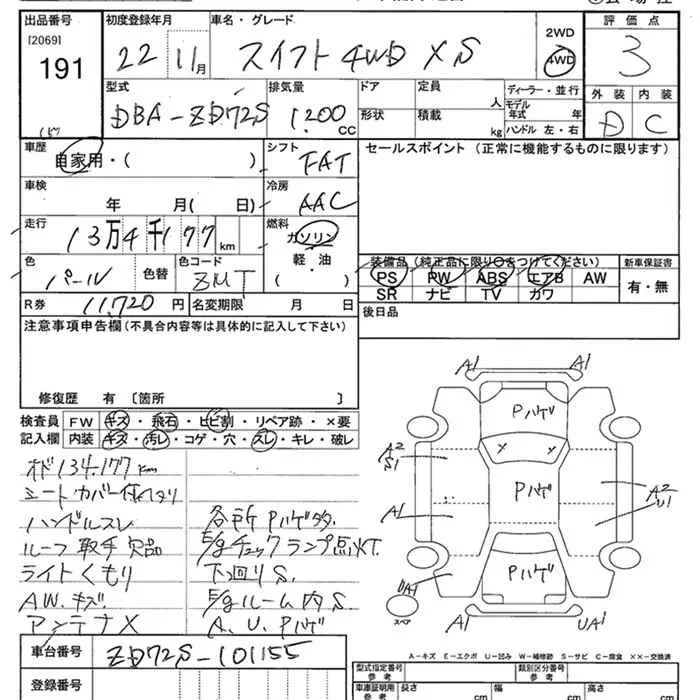 出品番号
[2069]
191
初度登録年月
22 11月
車名・グレード
スイフト 4WD XS
2WD
4WD
評価点
3
型式
DBA-ZD72S
排気量
1,200 CC
ドア
形状
定員
人
積載
kg
ディーラー・並行
モデル年式 年
ハンドル 左・右
外装
内装
D
C
車歴
自家用・( )
シフト
FAT
セールスポイント (正常に機能するものに限ります)
車検
年 月( 日)
冷房
AAC
走行
13万4千177km
燃料
ガソリン
軽・油
( )
色
パール
色替
色コード
ZMT
装備品(純正品に限り○をつけてください)
新車保証書
PS PW ABS エアB AW
有・無
SR ナビ TV カワ
R券
11,720 円
名変期限 月 日
後日品
注意事項申告欄(不具合内容等は具体的に記入して下さい)
修復歴 有〔箇所 〕
検査員記入欄
FW キズ・飛石・ヒビ割・リペア跡・×要
内装 キズ・汚レ・コゲ・穴・スレ・キレ・破レ
134.177km
シートカバー付
ハンドルスレ
ルーフ取手欠品
ライトくもり
AW.キズ
アンテナX
各所Pハゲ多.
E/gチェックランプ点灯.
下回りS.
E/gルーム内S.
A.U.Pハゲ
A1
A1
Pハゲ
X X
A2
S1
Pハゲ
A2
U1
A1
UA1
Pハゲ
スペア
A1
UA1
A-キズ E-エクボ U-凹み W-補修跡 S-サビ C-腐食 ××-交換済
車台番号
ZD72S-101155
登録番号
型式指定番号
参考
類別区分番号
参考
車庫証明用
参考
長さ cm
幅 cm
高さ cm